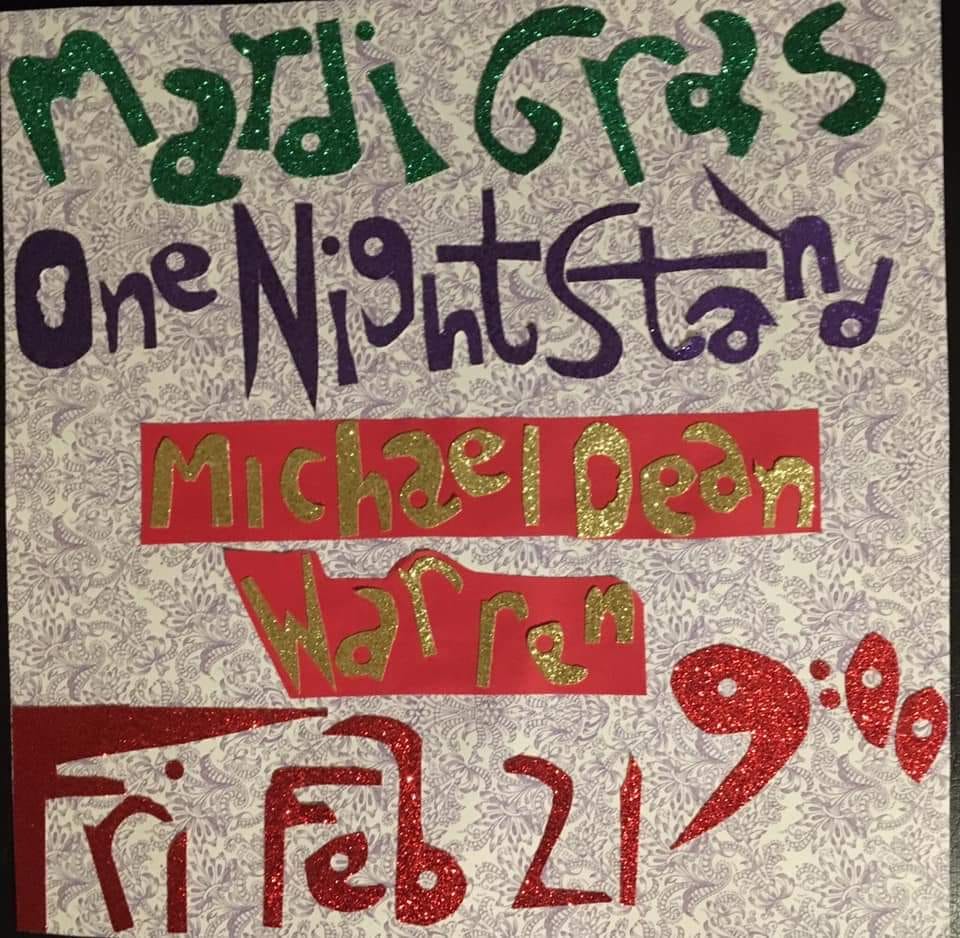 Mardi Gras
One Night Stand
Michael Dean
Warren
Fri Feb 21 9:00